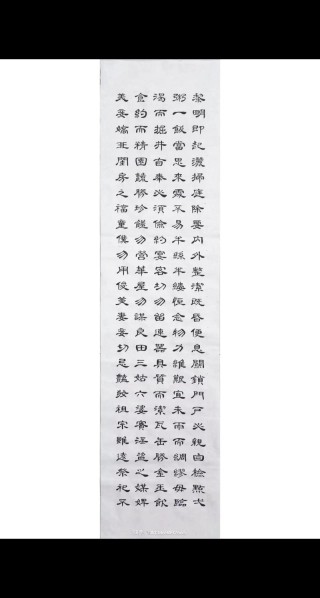 黎明即起灑掃庭除要內外整潔既昏便息關鎖門戶必親自檢點弌
粥一飯當思來處不易半絲半縷恒念物力維艱宜未雨而綢繆毋臨
渴而掘井自奉必須儉約宴客切勿留連器具質而潔瓦缶勝金玉飲
食約而精園蔬勝珍饈勿營華屋勿謀良田三姑六婆實淫盜之媒婢
美妾嬌非閨房之福童僕勿用俊美妻妾切忌豔妝祖宗雖遠祭祀不